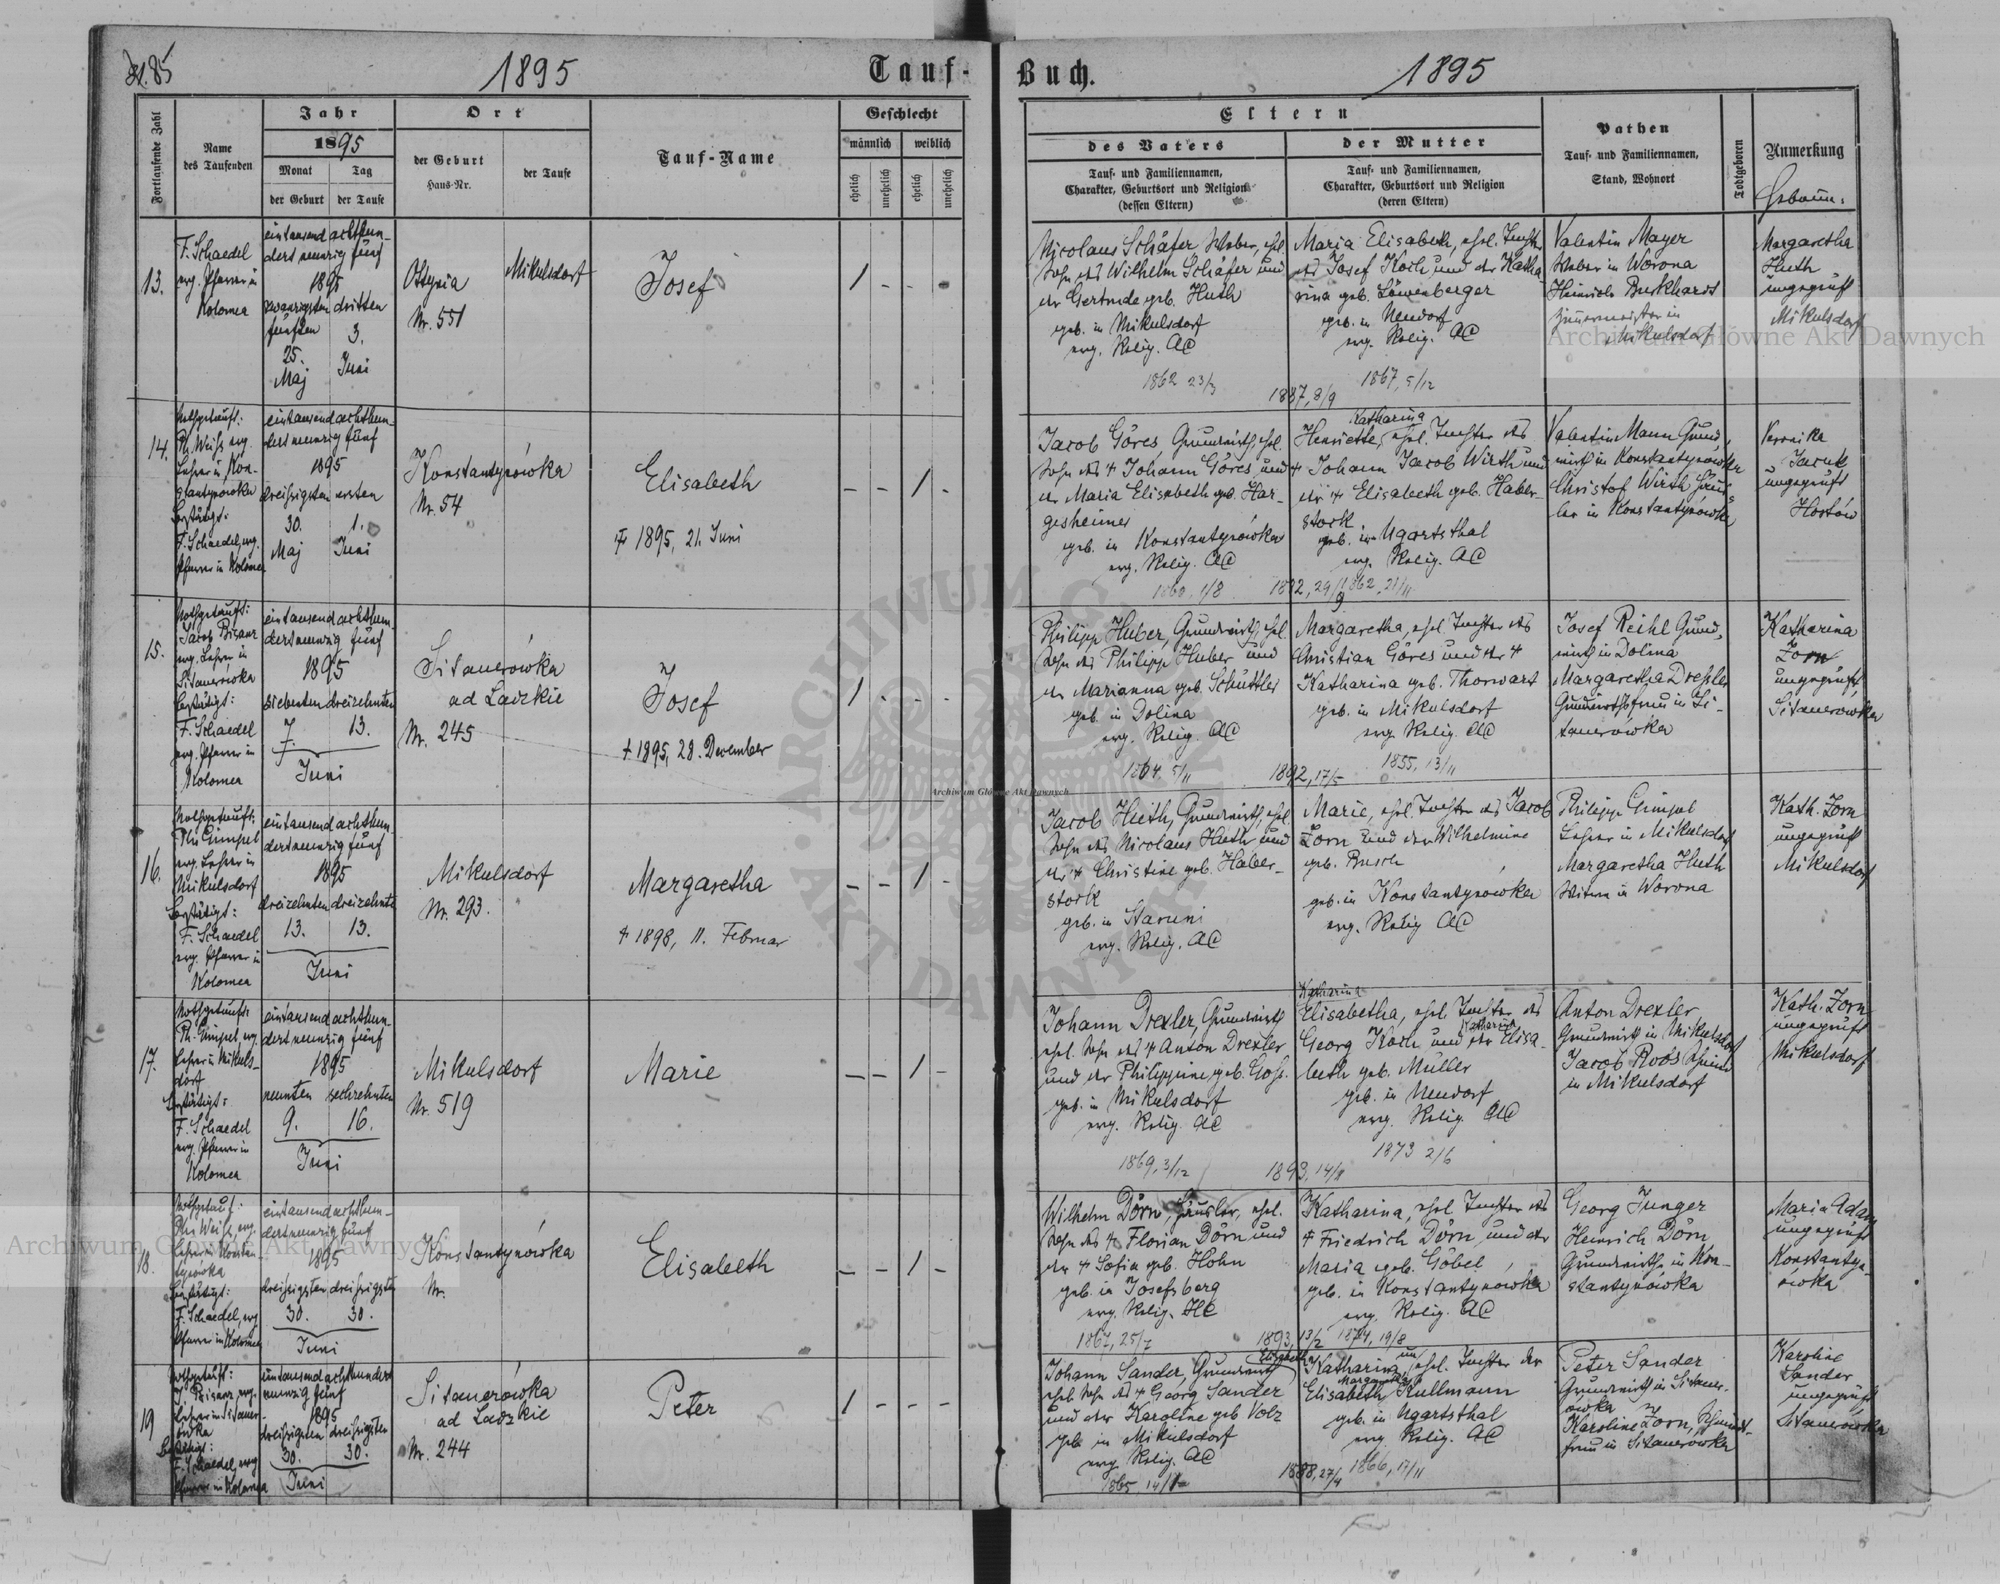 1895
Tauf-
Buch.
1895
Fortlaufende Zahl
Name
des Taufenden
Jahr
1895
Monat
Tag
der Geburt
der Taufe
Ort
der Geburt
Haus-Nr.
der Taufe
Tauf-Name
Geschlecht
männlich
weiblich
ehelich
unehelich
ehelich
unehelich
Eltern
des Vaters
Tauf- und Familiennamen,
Charakter, Geburtsort und Religion
(dessen Eltern)
der Mutter
Tauf- und Familiennamen,
Charakter, Geburtsort und Religion
(deren Eltern)
Pathen
Tauf- und Familiennamen,
Stand, Wohnort
Todtgeboren
Anmerkung
13.
F. Schaedel
evg. Pfarrer in
Kolomea
eintausend achthun-
dert neunzig fünf
1895
zwanzigsten dritten
fünften 3.
25.
Maj Juni
Ottynia
Nr. 551
Mikulsdorf
Josef
1 - - -
Nicolaus Schäfer Weber, ehel.
Sohn des Wilhelm Schäfer und
der Gertrude geb. Huth
geb. in Mikulsdorf
evg. Relig. AC
1862 23/3
1887, 8/9
Maria Elisabeth, ehel. Tochter
des Josef Koch und der Katha
rina geb. Löwenberger
geb. in Neudorf
evg. Relig. AC
1867, 5/12
Valentin Mayer
Weber in Worona
Heinrich Burkhardt
Zimmermeister in
Mikulsdorf
Margaretha
Huth
ungeprüft
Mikulsdorf
14.
Nothgetauft:
Ph. Weiß evg.
Lehrer in Kon-
stantynówka
bestätigt:
F. Schaedel, evg.
Pfarrer in Kolomea
eintausend achthun-
dert neunzig fünf
1895
dreißigsten ersten
30. 1.
Maj Juni
Konstantynówka
Nr. 54
Elisabeth
1895, 21. Juni
- - 1 -
Jacob Göres, Grundwirth, ehel.
Sohn des Johann Göres und
der Maria Elisabeth geb. Har-
gesheimer
geb. in Konstantynówka
evg. Relig. AC
1860, 1/8
Katharina
Henriette, ehel. Tochter des
Johann Jacob Wirth und
der Elisabeth geb. Haber-
stock
geb. in Ugartsthal
evg. Relig. AC
1862, 21/11
Valentin Mann Grund-
wirth in Konstantynówka
Christof Wirth Häus-
ler in Konstantynówka
Veronika
Jacuk
ungeprüft
Hostów
15.
Nothgetauft:
Jacob Bisanz
evg. Lehrer in
Sitauerówka
bestätigt:
F. Schaedel
evg. Pfarrer in
Kolomea
eintausend achthun-
dert neunzig fünf
1895
siebenten dreizehnten
7. 13.
Juni
Sitauerówka
ad Ladzkie
Nr. 245
Josef
† 1895, 28. Dezember
1 - - -
Philipp Huber, Grundwirth, ehel.
Sohn des Philipp Huber und
der Marianna geb. Schüttler
geb. in Dolina
evg. Relig. AC
1864, 5/11
1892, 17/5
Margaretha, ehel. Tochter des
Christian Göres und der
Katharina geb. Thorwart
geb. in Mikulsdorf
evg. Relig. AC
1855, 13/11
Josef Reihl Grund-
wirth in Dolina
Margaretha Drexler
Grundwirthsfrau in Si-
tauerówka
Katharina
Zorn
ungeprüft
Sitauerówka
16.
Nothgetauft:
Ph. Gimpel
evg. Lehrer in
Mikulsdorf
bestätigt:
F. Schaedel
evg. Pfarrer in
Kolomea
eintausend achthun-
dert neunzig fünf
1895
dreizehnten dreizehnten
13. 13.
Juni
Mikulsdorf
Nr. 293.
Margaretha
† 1898, 11. Februar
- - 1 -
Jacob Huth, Grundwirth, ehel.
Sohn des Nicolaus Huth und
der Christine geb. Haber-
stock
geb. in Staruni
evg. Relig. AC
Marie, ehel. Tochter des Jacob
Zorn und der Wilhelmine
geb. Busch
geb. in Konstantynówka
evg. Relig AC
Philipp Gimpel
Lehrer in Mikulsdorf
Margaretha Huth
Witwe in Worona
Kath. Zorn
ungeprüft
Mikulsdorf
17.
Nothgetauft:
Ph. Gimpel, evg.
Lehrer in Mikuls-
dorf
bestätigt:
F. Schaedel
evg. Pfarrer in
Kolomea
eintausend achthun-
dert neunzig fünf
1895
neunten sechzehnten
9. 16.
Juni
Mikulsdorf
Nr. 519
Marie
- - 1 -
Johann Drexler, Grundwirth
ehel. Sohn des Anton Drexler
und der Philippine geb.
geb. in Mikulsdorf
evg. Relig. AC
1869, 3/12
Katharina
Elisabetha, ehel. Tochter des
Georg Koch und der Elisa-
Katharina
beth geb. Müller
geb. in Neudorf
evg. Relig. AC
1873 2/6
Anton Drexler
Grundwirth in Mikulsdorf
Jacob Roos
in Mikulsdorf
Kath. Zorn
ungeprüft
Mikulsdorf
18.
Nothgetauft:
Ph. Weiß, evg.
Lehrer in Konstan-
tynówka
bestätigt:
F. Schaedel, evg
Pfarrer in Kolomea
eintausend achthun-
dert neunzig fünf
1895
dreißigsten dreißigsten
30. 30.
Juni
Konstantynówka
Nr.
Elisabeth
- - 1 -
Wilhelm Dörn, Häusler, ehel.
Sohn des Florian Dörn und
der Sofia geb. Hohn
geb. in Josefsberg
evg. Relig. HC
1867, 25/7
1893, 13/2
Katharina, ehel. Tochter des
Friedrich Dörn und der
Maria geb. Göbel
geb. in Konstantynówka
evg. Relig. AC
1874, 19/8
Georg Junger
Heinrich Dörn
Grundwirthe in Kon-
stantynówka
Maria Adam
ungeprüft
Konstantyn-
ówka
19
Nothgetauft:
J. Bisanz, evg.
Lehrer in Sitauer-
ówka
bestätigt:
F. Schaedel, evg
Pfarrer in Kolomea
eintausend achthundert
neunzig fünf
1895
dreißigsten dreißigsten
30. 30.
Juni
Sitauerówka
ad Ladzkie
Nr. 244
Peter
1 - - -
Johann Sander, Grundwirth
ehel. Sohn des Georg Sander
und der Karoline geb Volz
geb. in Mikulsdorf
evg. Relig. AC
1888, 27/4
Elisabeth
Katharina, unehel. Tochter der
Margaretha
Elisabeth Kullmann
geb. in Ugartsthal
evg Relig. AC
1866, 17/11
Peter Sander
Grundwirth in Sitauer-
ówka
Karoline Zorn, Schmidt-
frau in Sitauerówka
Karoline
Sander
ungeprüft
Sitauerówka
Archiwum Główne Akt Dawnych
Archiwum Główne Akt Dawnych
Archiwum Główne Akt Dawnych
ARCHIWUM GŁÓWNE AKT DAWNYCH